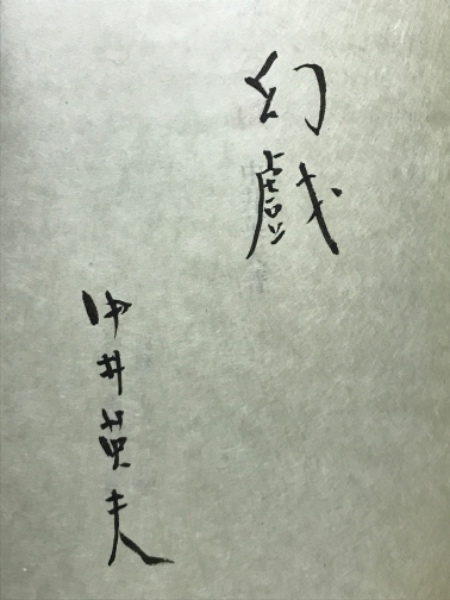 幻戯
中井英夫